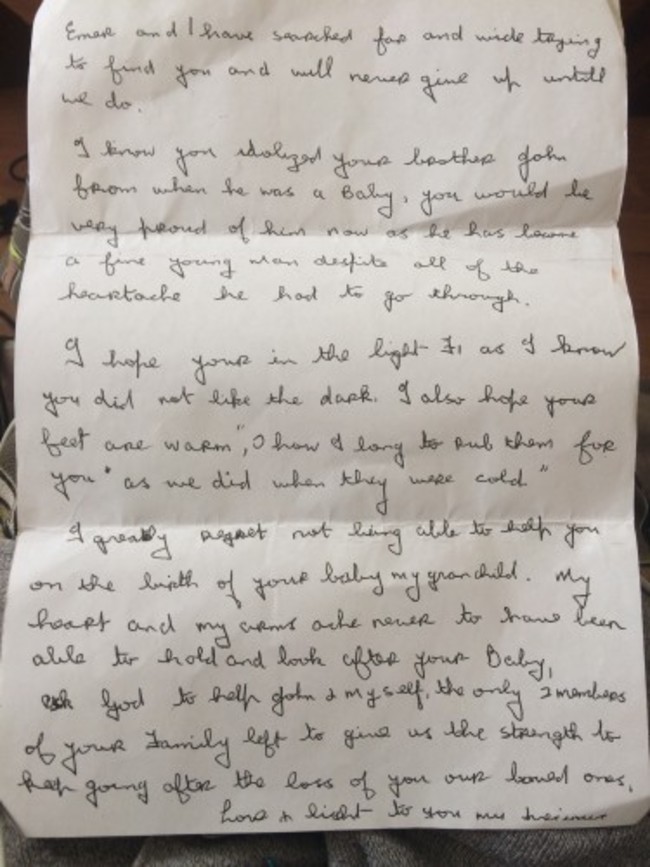 Emer and I have searched far and wide trying
to find you and will never give up untill
we do.
I know you idolized your brother John
from when he was a Baby, you would be
very proud of him now as he has become
a fine young man despite all of the
heartache he had to go through.
I hope your in the light as I know
you did not like the dark. I also hope your
feet are warm", O how I long to rub them for
you" as we did when they were cold."
I greatly regret not being able to help you
on the birth of your baby my granchild. My
heart and my arms ache never to have been
able to hold and look after your Baby,
God to help John & myself, the only 2 members
of your Family left to give us the strength to
keep going after the loss of you our loved ones,
Love & light to you my